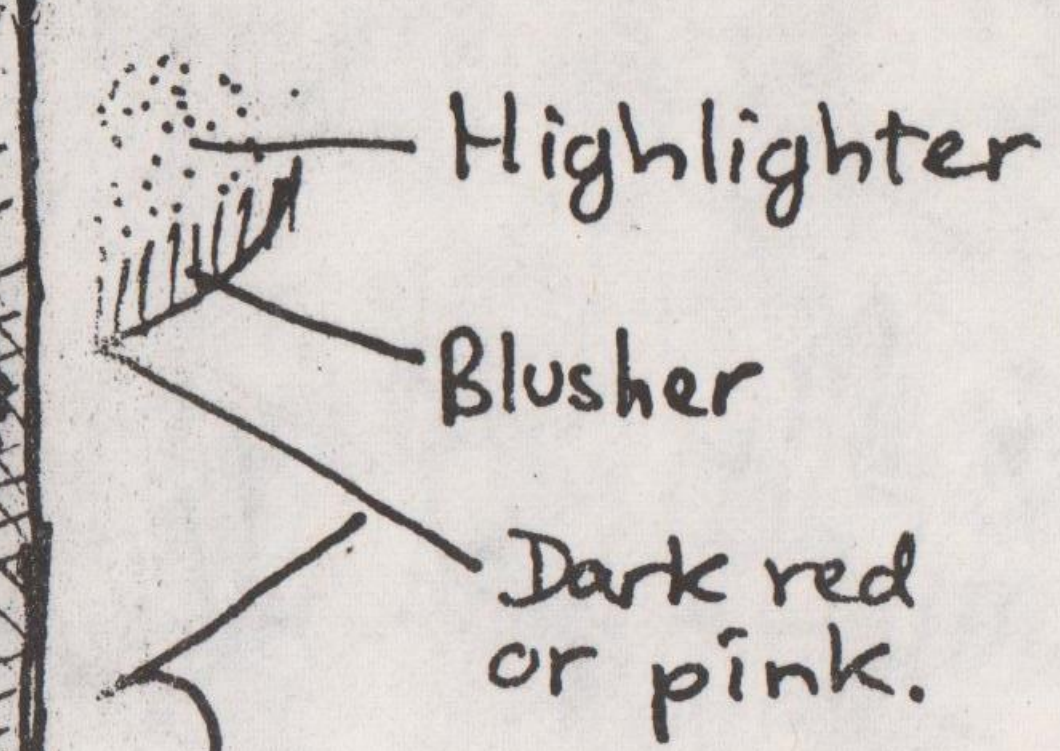 Highlighter
Blusher
Dark red
or pink.